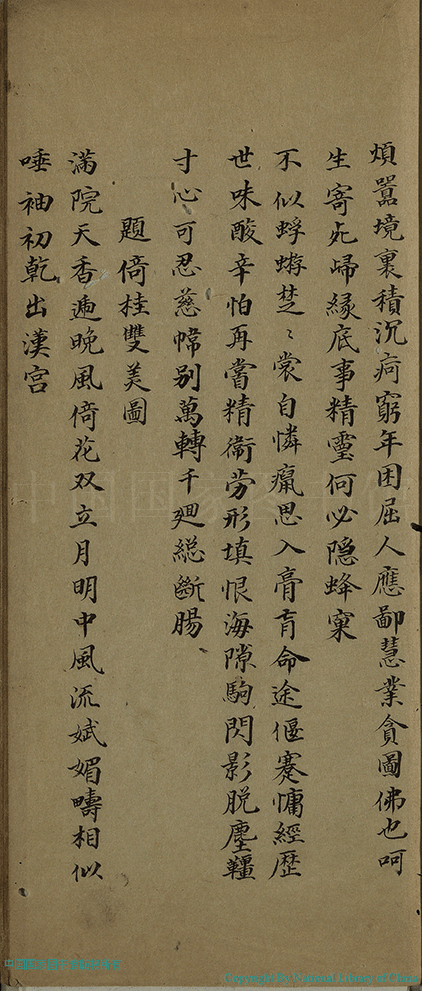 煩嚣境裏積沉疴窮年困屈人應鄙慧業貪圖佛也呵
生寄死歸緣底事精靈何必隐蜂窠
不似蜉蝣楚〻裳自憐癙思入膏肓命途偃蹇慵經歷
世味酸辛怕再嘗精衛劳形填恨海隙駒閃影脱塵韁
寸心可忍慈幃别萬轉千廻総斷腸
題倚桂雙美圖
滿院天香遍晚風倚花双立月明中風流斌媚疇相似
唾袖初乾出漢宮
Copyright By National Library of China